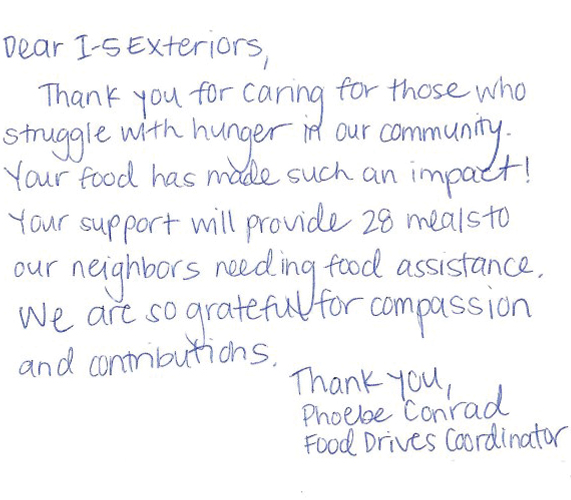 Dear I-5 Exteriors,
Thank you for caring for those who
struggle with hunger in our community.
Your food has made such an impact!
Your support will provide 28 meals to
our neighbors needing food assistance.
We are so grateful for compassion
and contributions.
Thank you,
Phoebe Conrad
Food Drives Coordinator